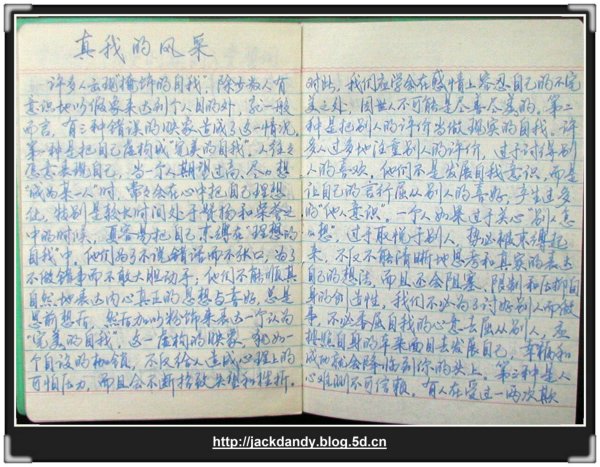 真我的风采
许多人出现"掩饰的自我"。除少数人有
意识地以假象来达到个人目的外,就一般
而言,有三种错误的映象造成了这一情况。
第一种是把自己虚构成"完美的自我"。人往往
愿意表现自己,当一个人期望过高、尽心想
"成为某一人"时,常常会在心中把自己理想
化。特别是较长时间处于赞扬和荣誉之
中的时候,更容易把自己束缚在"理想的
自我"中。他们为了不说错话而不张口,为了
不做错事而不敢大胆动手。他们不能顺其
自然地表达内心真正的思想与喜好,总是
思前想后,然后加以粉饰来表达一个认为
"完美的自我"。这一虚构的映象,犹如一
个自设的枷锁,不仅给人造成心理上的
可怕压力,而且会不断招致失望和挫折。
对此,我们应学会在感情上容忍自己的不完
美之处,因世人不可能是尽善尽美的。第二
种是把别人的评价当做现实的自我。许
多人过多地注重别人的评价,过于讨得别
人的喜欢,他们不是发展自我意识,而是
让自己的言行屈从别人的喜好,产生过多
的"他人意识"。一个人如果过于关心"别人怎
么想",过于取悦于别人,势必被束缚起
来,不仅不能清晰地思考和真实的表达
自己的想法,而且还会阻塞、限制和压抑自
身的创造性。我们不必为了讨好别人而做
事,不必委屈自我的心意去屈从别人,应
按照自身的本来面目去发展自己,幸福和
成功就会降临到你的头上。第三种是人
心难测不可信赖。有人在受过一两次欺
http://jackdandy.blog.5d.cn